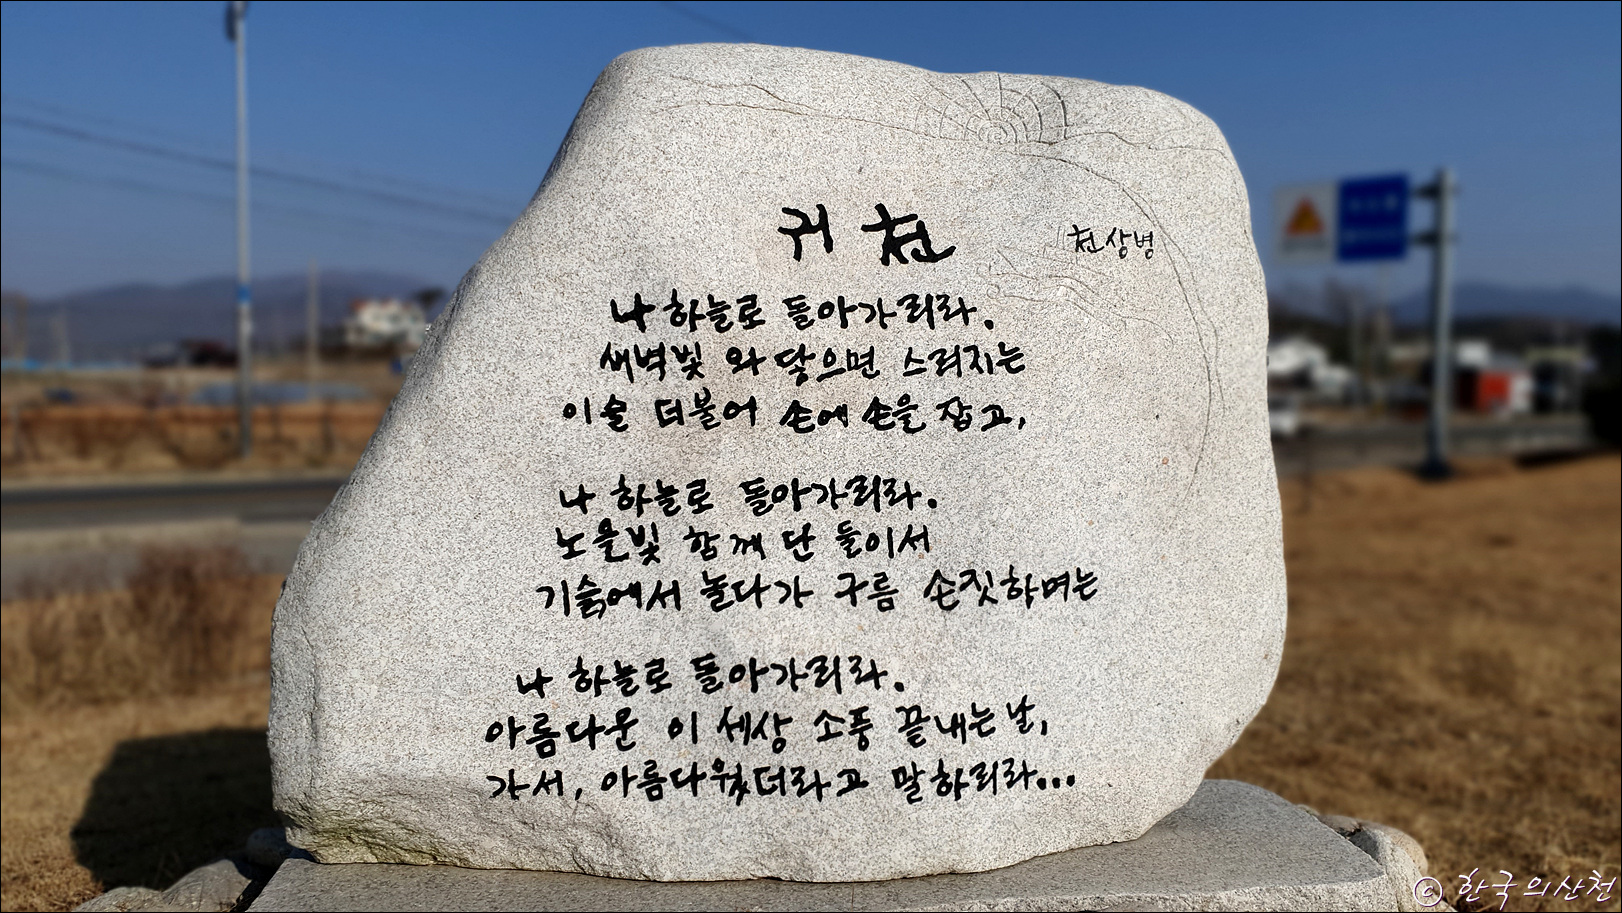 귀천 천상병
나 하늘로 돌아가리라.
새벽빛 와 닿으면 스러지는
이슬 더불어 손에 손을 잡고,
나 하늘로 돌아가리라.
노을빛 함께 단 둘이서
기슭에서 놀다가 구름 손짓하며는
나 하늘로 돌아가리라.
아름다운 이 세상 소풍 끝내는 날,
가서, 아름다웠더라고 말하리라...
ⓒ 한국의산천